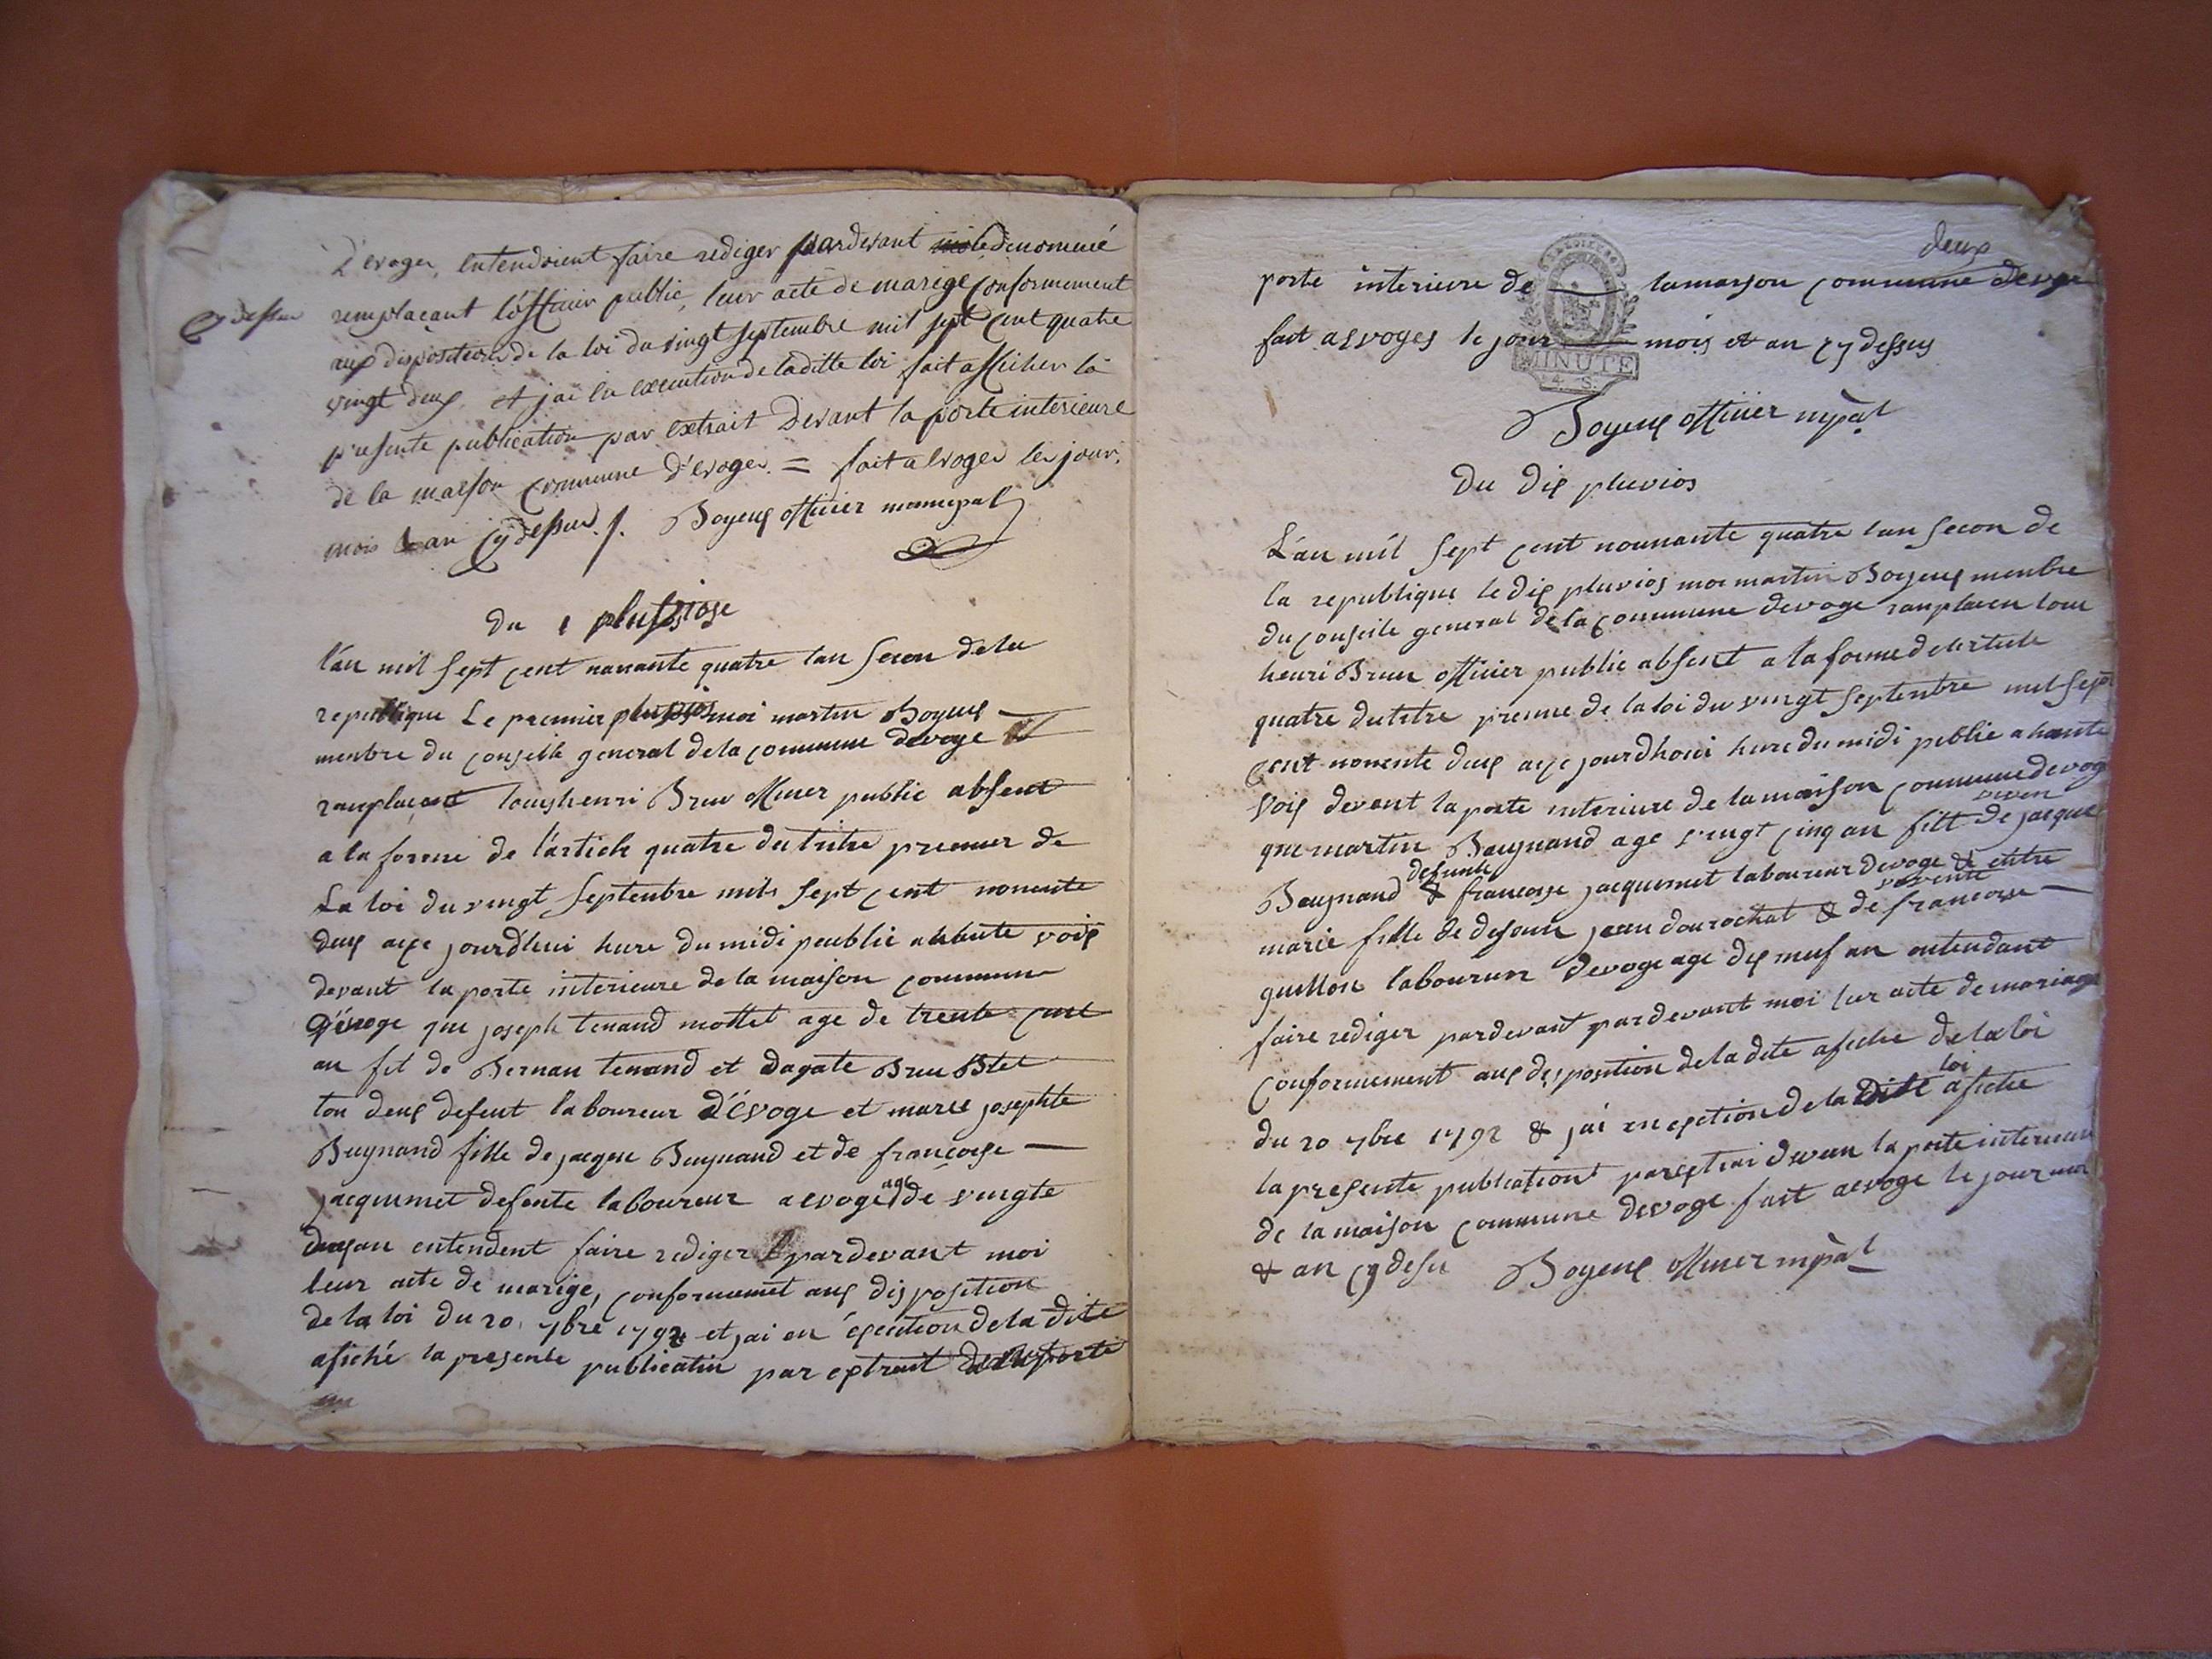 D'evoges, entendoient faire rediger pardevant le denommé
cy dessus
remplacant l'officier public, leur acte de marige conformement
aux dispositions de la loi du vingt septembre mil sept cent quatre
vingt deux, et j'ai en execution de laditte loi fait afficher la
presente publication par extrait devant la porte interieure
de la maison commune d'evoges = fait a evoges les jour,
mois & an cy dessus ./. Boyeux officier municpal
du 1 pluviose
l'an mil sept cent nanante quatre lan secon de la
republique Le premier pluvios moi martin Boyeux
menbre du conseille general de la commune devoge
ranplacant louis henri Brun officier public absent
a la forme de l'article quatre du tritre premier de
La loi du vingt septenbre mils sept cent nonente
deux aye jourd'hui hure du midi peublié a haute voix
devant la porte interieure de la maison commune
d'évoge que joseph tenand mottet age de trente
an fil de Bernan tenand et dagate Brun
ton deux defent laboureur d'évoge et marie josephte
Buynand fille de jaque Buynand et de françoise
jacquemet defente laboureur a evoge age de vingte
deux an entendent faire rediger pardevant moi
leur acte de marige, conformemet aux disposition
de la loi du 20 7bre 1792 et jai en éxecution de la dite
afiché la presente publicatin par extrait
deux
porte interieure de la maison commune devoge
MINUTE
4. S.
fait a evoges le jour mois et an cy dessus
Boyeux officier mpàl
du dix pluvios
L'an mil sept cent nounante quatre lan secon de
la republique le dix pluvios moi martin Boyeux menbre
du conseile general de la commune devoge ranplacen loui
henri Brun officier public absent a la forme de larticle
quatre du titre premie de la loi du vingt septenbre mil sept
cent nonente deux aye jourdhoui hure du midi peblie a haute
voix devent la porte interiure de la maison commune devoge
que martin Buynand age vingt cinq an fill de jacque
Buynand defunte & francoise jacquemet laboureur devoge & entre
marie fille de defeun jean dourochat & de vivente francoise
guillon laboureur devoge age dix neuf an entendant
faire rediger pardevant pardevant moi leur acte de mariage
conformement aux disposition de la dite afiche de la loi
du 20 7bre 1792 & jai en exection de la loi afiche
la presente publication par extrai devan la porte interieure
de la maison commune devoge fait aevoge le jour moi
& an cy desu Boyeux officier mpàl